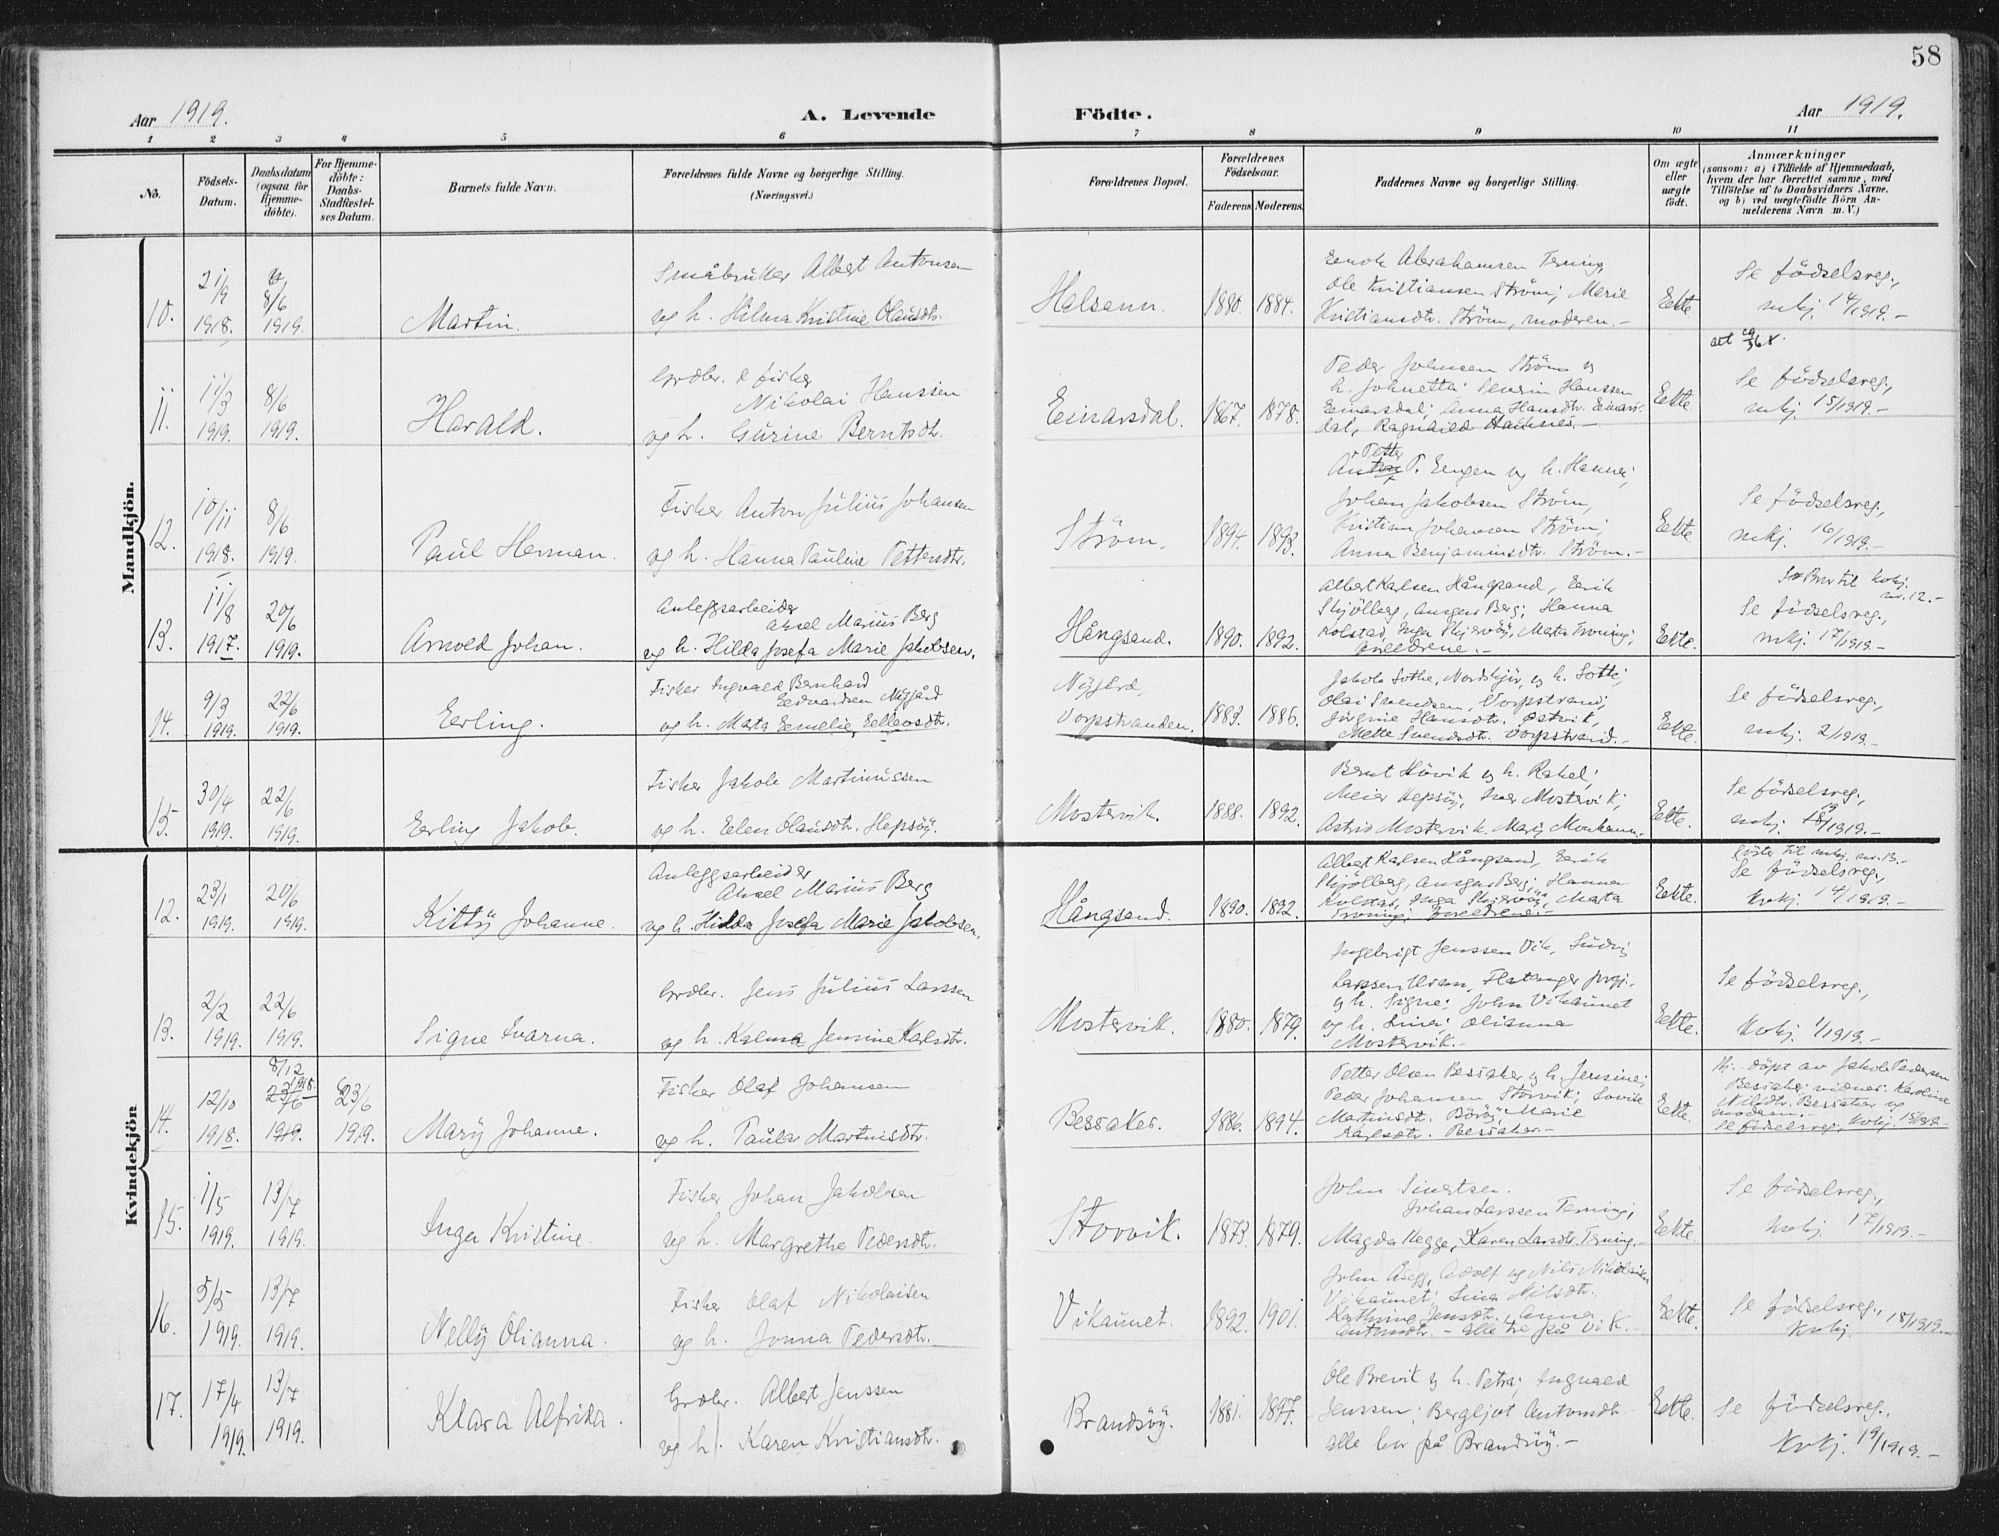 58
Aar 1919.
A. Levende
Födte.
Aar 1919.
1 2 3 4 5 6 7 8 9 10 11
No.
Födsels-Datum.
Daabsdatum (ogsaa for Hjemme-döbte).
For Hjemme-döbte: Daabs-Stadfæstel-ses Datum.
Barnets fulde Navn.
Forældrenes fulde Navne og borgerlige Stilling. (Næringsvei.)
Forældrenes Bopæl.
Forældrenes Födselsaar.
Faderens Moderens
Faddernes Navne og borgerlige Stilling.
Om ægte eller uægte født.
Anmærkninger
(saasom: a) i Tilfælde af Hjemmedaab,
hvem der har forrettet samme, med
Tilföielse af to Daabsvidners Navne,
og b) ved uægtefödte Börn An-
melderens Navn m. V.)
Mandkjön.
10. 21/9 1918. 8/6 1919. Martin.
Småbruker Albert Antonsen
og h. Hilma Kristine Olausdtr.
Halsenn. 1880. 1884.
Enok Abrahamsen Terning,
Ole Kristiansen Ström; Marie
Kristiansdtr. Ström, moderen.-
Eekte
Se födselsreg.,
mkj. 14/1919.-
11. 11/3 1919. 8/6 1919. Harald.
Grdbr. & fisker
Nikolai Hanssen
og h. Gurine Berntsdtr.
Einarsdal. 1867. 1878.
Peder Johnsen Ström og
h. Johnetta; Severin Hanssen
Einarsdal; Anna Hansdtr. Einars-
dal,
Eekte
Se födselsreg.,
mkj. 15/1919.-
12. 10/11 1918. 8/6 1919. Paul Herman.
Fisker Anton Julius Johansen
og h. Hanna Pauline Pettersdtr.
Ström. 1894. 1893.
Petter
P. Eengen og h. Hanna;
Johan Jakobsen Ström,
Kristian Johansen Ström;
Anna Benjaminsdtr. Ström.-
Eekte
Se födselsreg.,
mkj. 16/1919.-
13. 11/8 1917. 20/6 1919. Arnold Johan.
Anleggsarbeider
Aksel Marius Berg
og h. Hilda Josefa Marie Jakobsen.
Hångsand. 1890. 1892.
Albert Karlsen Hångsand, Eerik
Skjölberg, Ansgar Berg; Hanna
Kolstad, Inga Skjervöy, Marta Terning;
foreldrene.-
Eekte.
Bror til kvkj.
nr. 12.-
Se födselsreg.,
mkj. 17/1919.-
14. 9/3 1919. 22/6 1919. Eerling.
Fisker Ingvald Bernhard
Eedvardsen Nygård
og h. Marta Eemelie Eellevsdtr.
Nygård,
Vorpstranden. 1883. 1886.
Jakob Sothe, Nordskjör, og h. Sotti;
Olai Svendsen, Vorpstrand;
Jörgine Hansdtr. Østvik,
Mette Svendsdtr. Vorpstrand.-
Eekte.
Se födselsreg.,
mkj. 2/1919.-
15. 30/4 1919. 22/6 1919. Eerling Jakob.
Fisker Jakob Martinussen
og h. Eelen Olausdtr. Hepsöy.
Mostervik. 1888. 1892.
Bernt Hövik og h. Rakel;
Meier Hepsöy, Iver Mostervik;
Astrid Mostervik,
Eekte.
Se födselsreg.,
mkj. /1919.-
Kvindekjön
12. 23/1 1919. 20/6 1919. Kitty Johanne.
Anleggsarbeider
Aksel Marius Berg
og h. Hilda Josefa Marie Jakobsen.
Hångsand. 1890. 1892.
Albert Karlsen Hångsand, Eerik
Skjölberg, Ansgar Berg; Hanna
Kolstad, Inga Skjervöy, Marta
Terning; foreldrene.-
Eekte.
Söster til mkj. nr. 13.-
Se födselsreg.,
kvkj. 14/1919.-
13. 2/2 1919. 22/6 1919. Signe Ivarna.
Grdbr. Jens Julius Larssen
og h. Kalma Jensine Karlsdtr.
Mostervik. 1880. 1879.
Ingebrigt Jenssen Vik, Ludvig
Larssen Utvan, Flatanger
og h. Signe; John Vikaunet
og h. Lina; Olianna
Mostervik.-
Eekte.
Se födselsreg.,
kvkj. 1/1919.-
14. 12/10 1918. 8/12 1918. 23/6 1919. 23/6 1919. Mary Johanne.
Fisker Olaf Johansen
og h. Paula Martinsdtr.
Bessaker. 1886. 1894.
Petter Olsen Bessaker og h. Jensine;
Peder Johansen Storvik; Lovise
Martinsdtr. Böröy; Marie
Karlsdtr. Bessaker.-
Eekte.
Hj. döpt av Jakob Pedersen
Bessaker; vidner: Karoline
Nilsdtr. Bessaker og
moderen.-
Se födselsreg., kvkj. 15/1919.-
15. 1/5 1919. 13/7 1919. Inga Kristine.
Fisker Johan Jakobsen
og h. Margrethe Pedersdtr.
Storvik. 1873. 1879.
John Sivertsen.
Johan Larssen Terning;
Magda Hegge, Karen Larsdtr. Terning.-
Eekte.
Se födselsreg.,
kvkj. 17/1919.-
16. 5/5 1919. 13/7 1919. Nelly Olianna.
Fisker Olaf Nikolaisen
og h. Jonna Pedersdtr.
Vikaunet. 1892. 1901.
John Åsegg, Adolf og Nils Nikolaisen
Vikaunet; Lina Nilsdtr.
Kathrine Jensdtr., Anna
Antonsdtr. - alle tre på Vik.-
Eekte.
Se födselsreg.,
kvkj. 18/1919.-
17. 17/4 1919. 13/7 1919. Klara Alfrida.
Grdbr. Albert Jenssen
og h. Karen Kristiansdtr.
Brandsöy. 1881. 1897.
Ole Brevik og h. Petra; Ingvald
Jenssen; Bergljot Antonsdtr.
alle bor på Brandsöy.-
Eekte.
Se födselsreg.,
kvkj. 19/1919.-